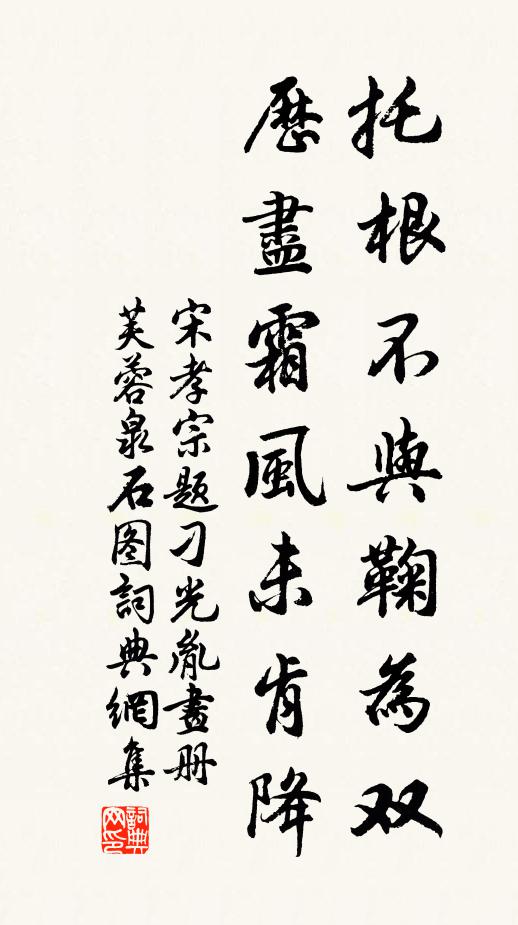 托根不與鞠為双
歷盡霜風未肯降
宋孝宗題刁光胤畫册
芙蓉泉石图詞典網集
詞典网印